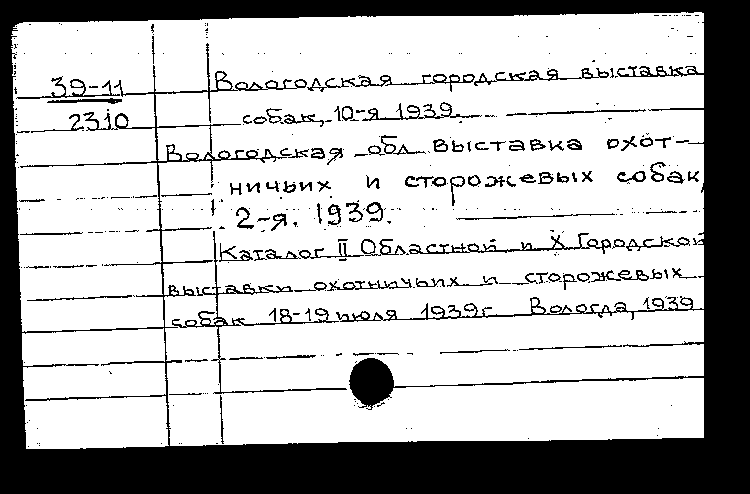 39-11
2310
Вологодская городская выставка
собак, 10-я 1939.
Вологодская обл выставка охот-
ничьих и сторожевых собак,
2-я. 1939.
Каталог II Областной и X Городской
выставки охотничьих и сторожевых
собак 18-19 июля 1939г Вологда, 1939